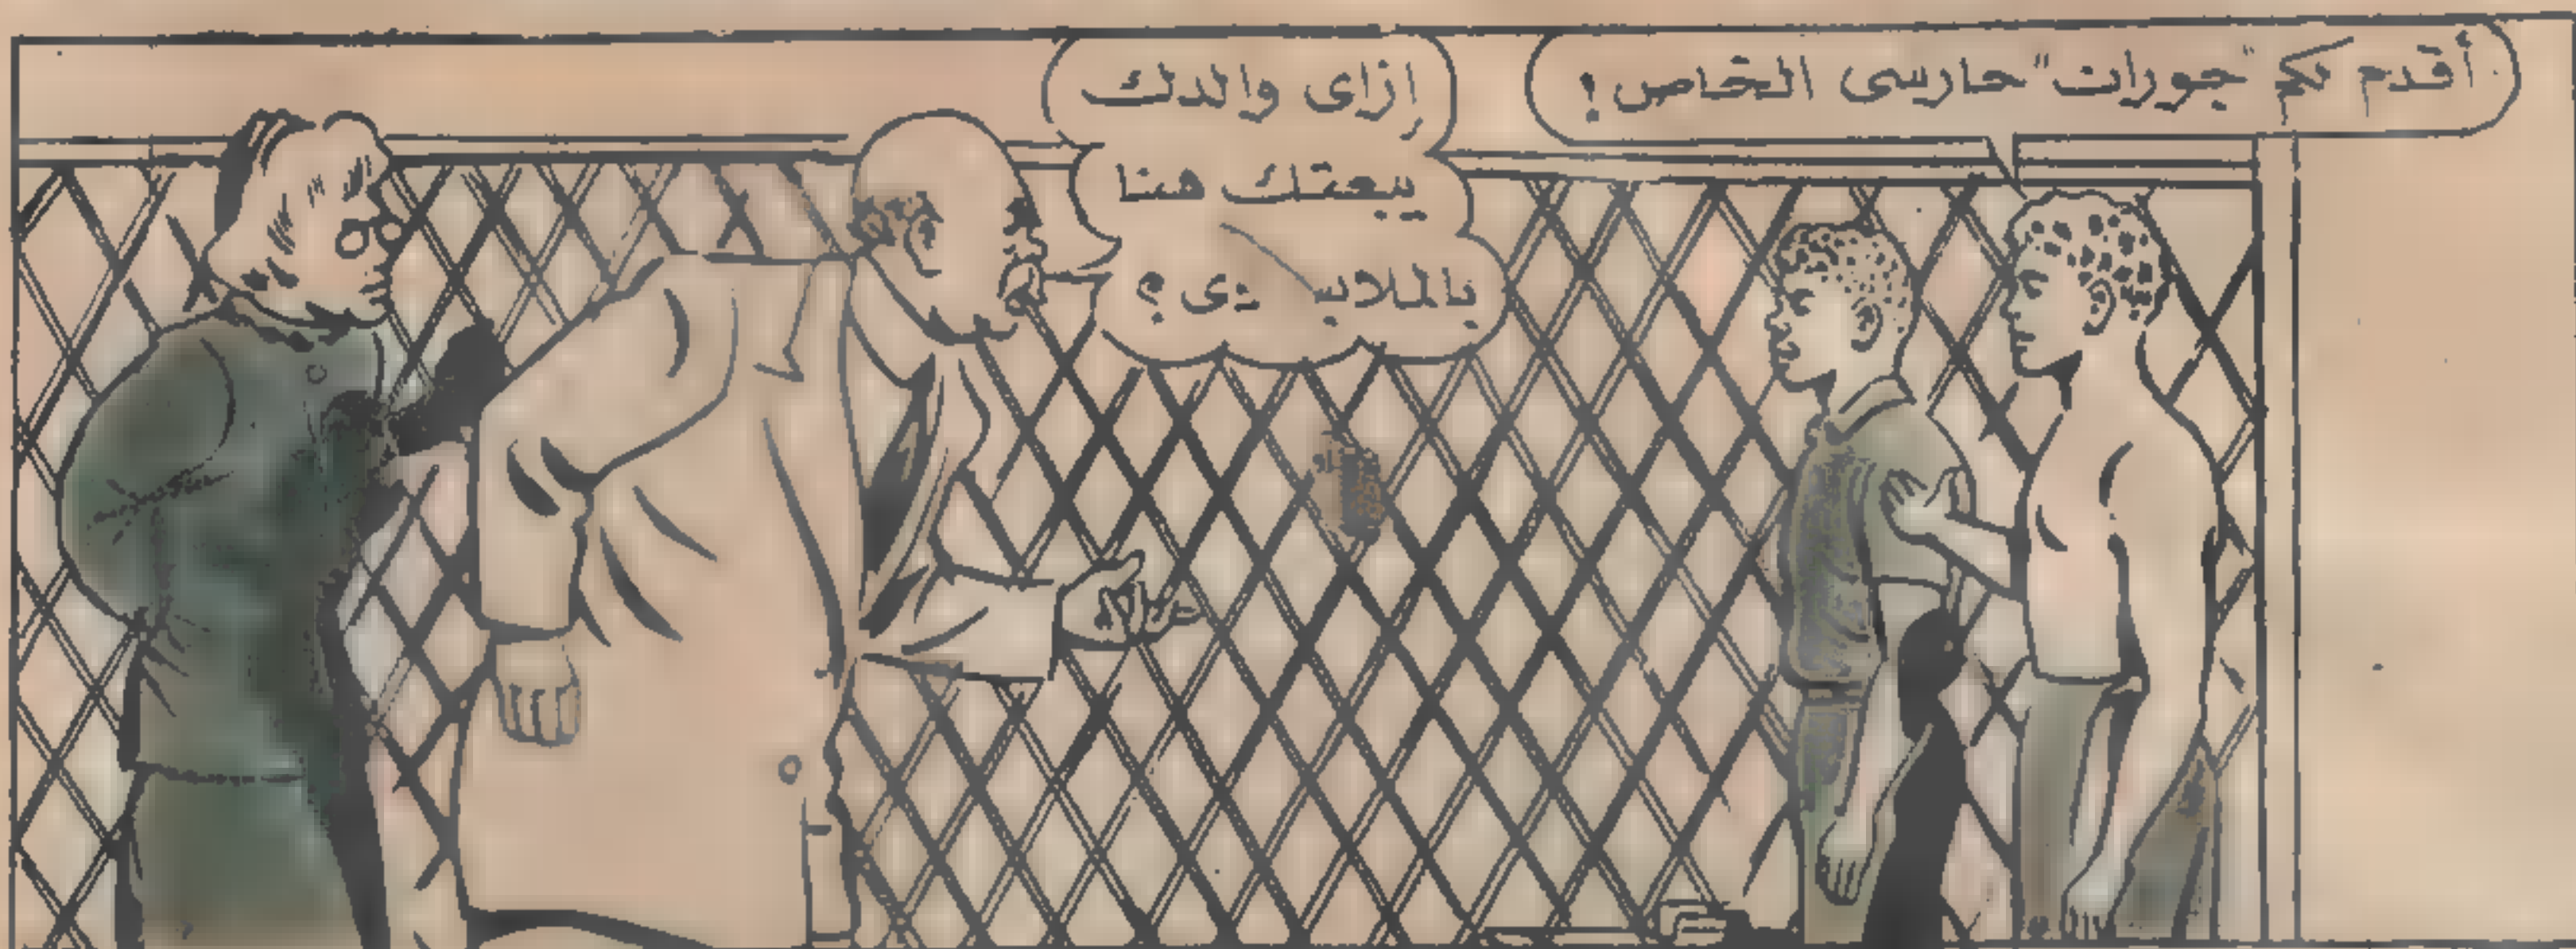 أقدم لكم "جورات" حارسى الخاص!
ازاى والدك
يبعتك هنا
بالملابس دى؟